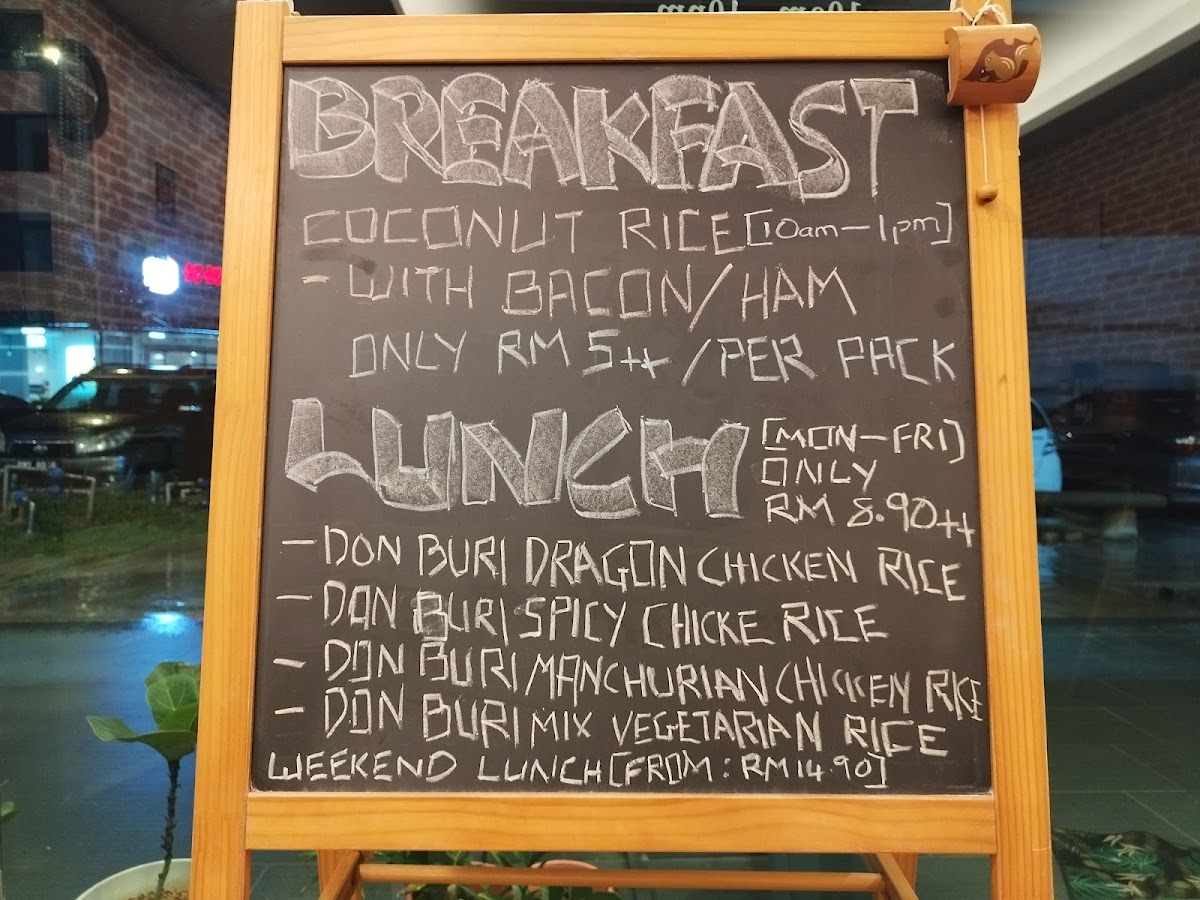 BREAKFAST
COCONUT RICE [10am-1pm]
- WITH BACON/HAM
ONLY RM 5++ /PER PACK
LUNCH [MON-FRI]
ONLY
RM 8.90++
- DON BURI DRAGON CHICKEN RICE
- DON BURI SPICY CHICKE RICE
- DON BURI MANCHURIAN CHICKEN RICE
- DON BURI MIX VEGETARIAN RICE
WEEKEND LUNCH [FROM: RM 14.90]